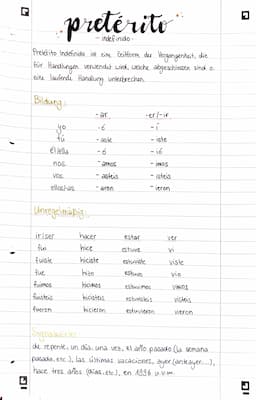 pretérito
- indefinido -
Pretérito Indefinido ist eine Zeitform der Vergangenheit, die
für Handlungen verwendet wird, welche abgeschlossen sind o.
eine laufende Handlung unterbrechen.
Bildung:
-ar -er/-ir
yo -é -í
tú -aste -iste
él/ella -ó -ió
nos. -amos -imos
vos. -asteis -isteis
ellos/as -aron -ieron
Unregelmäßig:
ir/ser hacer estar ver
fui hice estuve vi
fuiste hiciste estuviste viste
fue hizo estuvo vio
fuimos hicimos estuvimos vimos
fuisteis hicisteis estuvisteis visteis
fueron hicieron estuvieron vieron
Signalwörter:
de repente, un día, una vez, el año pasado (la semana
pasada, etc.), las últimas vacaciones, ayer (anteayer...),
hace tres años (días, etc.), en 1996 u.v.m.